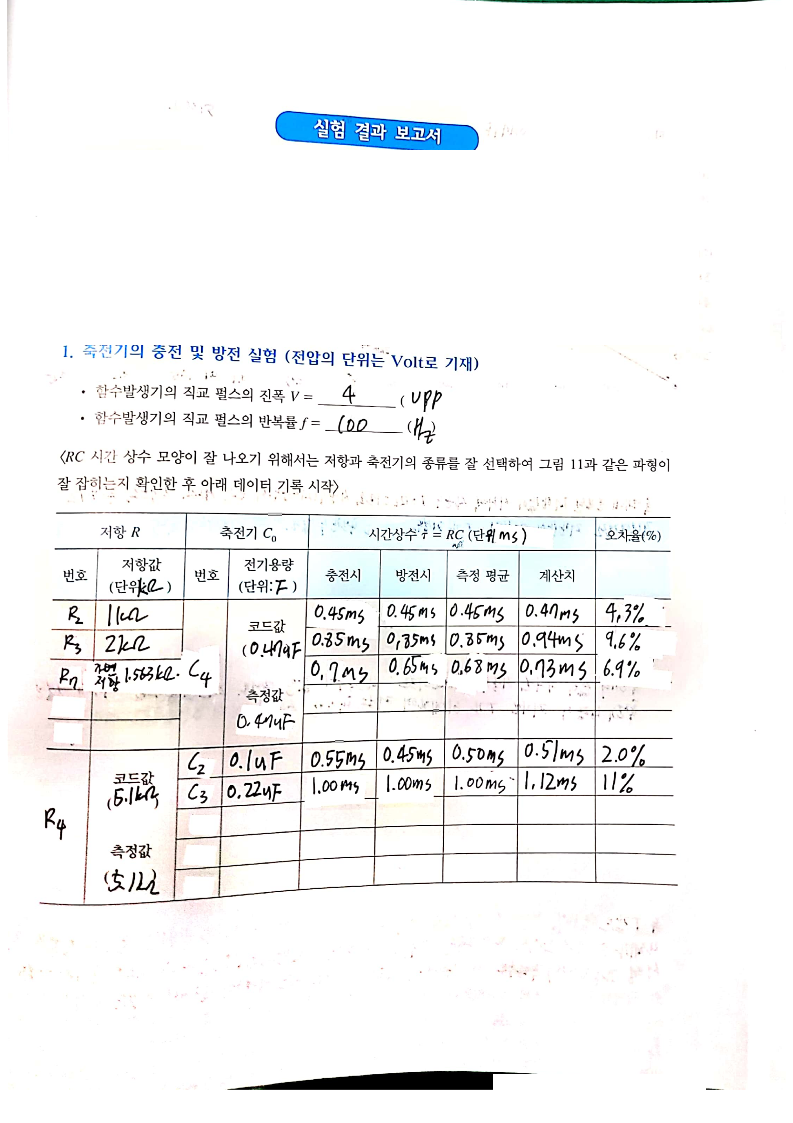 실험 결과 보고서
1. 축전기의 충전 및 방전 실험 (전압의 단위는 Volt로 기재)
• 함수발생기의 직교 펄스의 진폭 V = 4 ( UPP
• 함수발생기의 직교 펄스의 반복률 f = 100 (Hz)
〈RC 시간 상수 모양이 잘 나오기 위해서는 저항과 축전기의 종류를 잘 선택하여 그림 11과 같은 파형이
잘 잡히는지 확인한 후 아래 데이터 기록 시작〉
저항 R 축전기 C₀ 시간상수 τ = RC (단위 ms) 오차율(%)
번호 저항값 (단위:kΩ) 번호 전기용량 (단위:F) 충전시 방전시 측정 평균 계산치
R₂ 1kΩ 0.45ms 0.45ms 0.45ms 0.47ms 4.3%
R₃ 2kΩ 0.85ms 0.85ms 0.85ms 0.94ms 9.6%
R₇ 저항 1.563kΩ 0.7ms 0.65ms 0.68ms 0.73ms 6.9%
C₄
코드값
(0.47uF
측정값
0.47uF
C₂ 0.1uF 0.55ms 0.45ms 0.50ms 0.51ms 2.0%
C₃ 0.22uF 1.00ms 1.00ms 1.00ms 1.12ms 11%
R₄
코드값
(5.1kΩ)
측정값